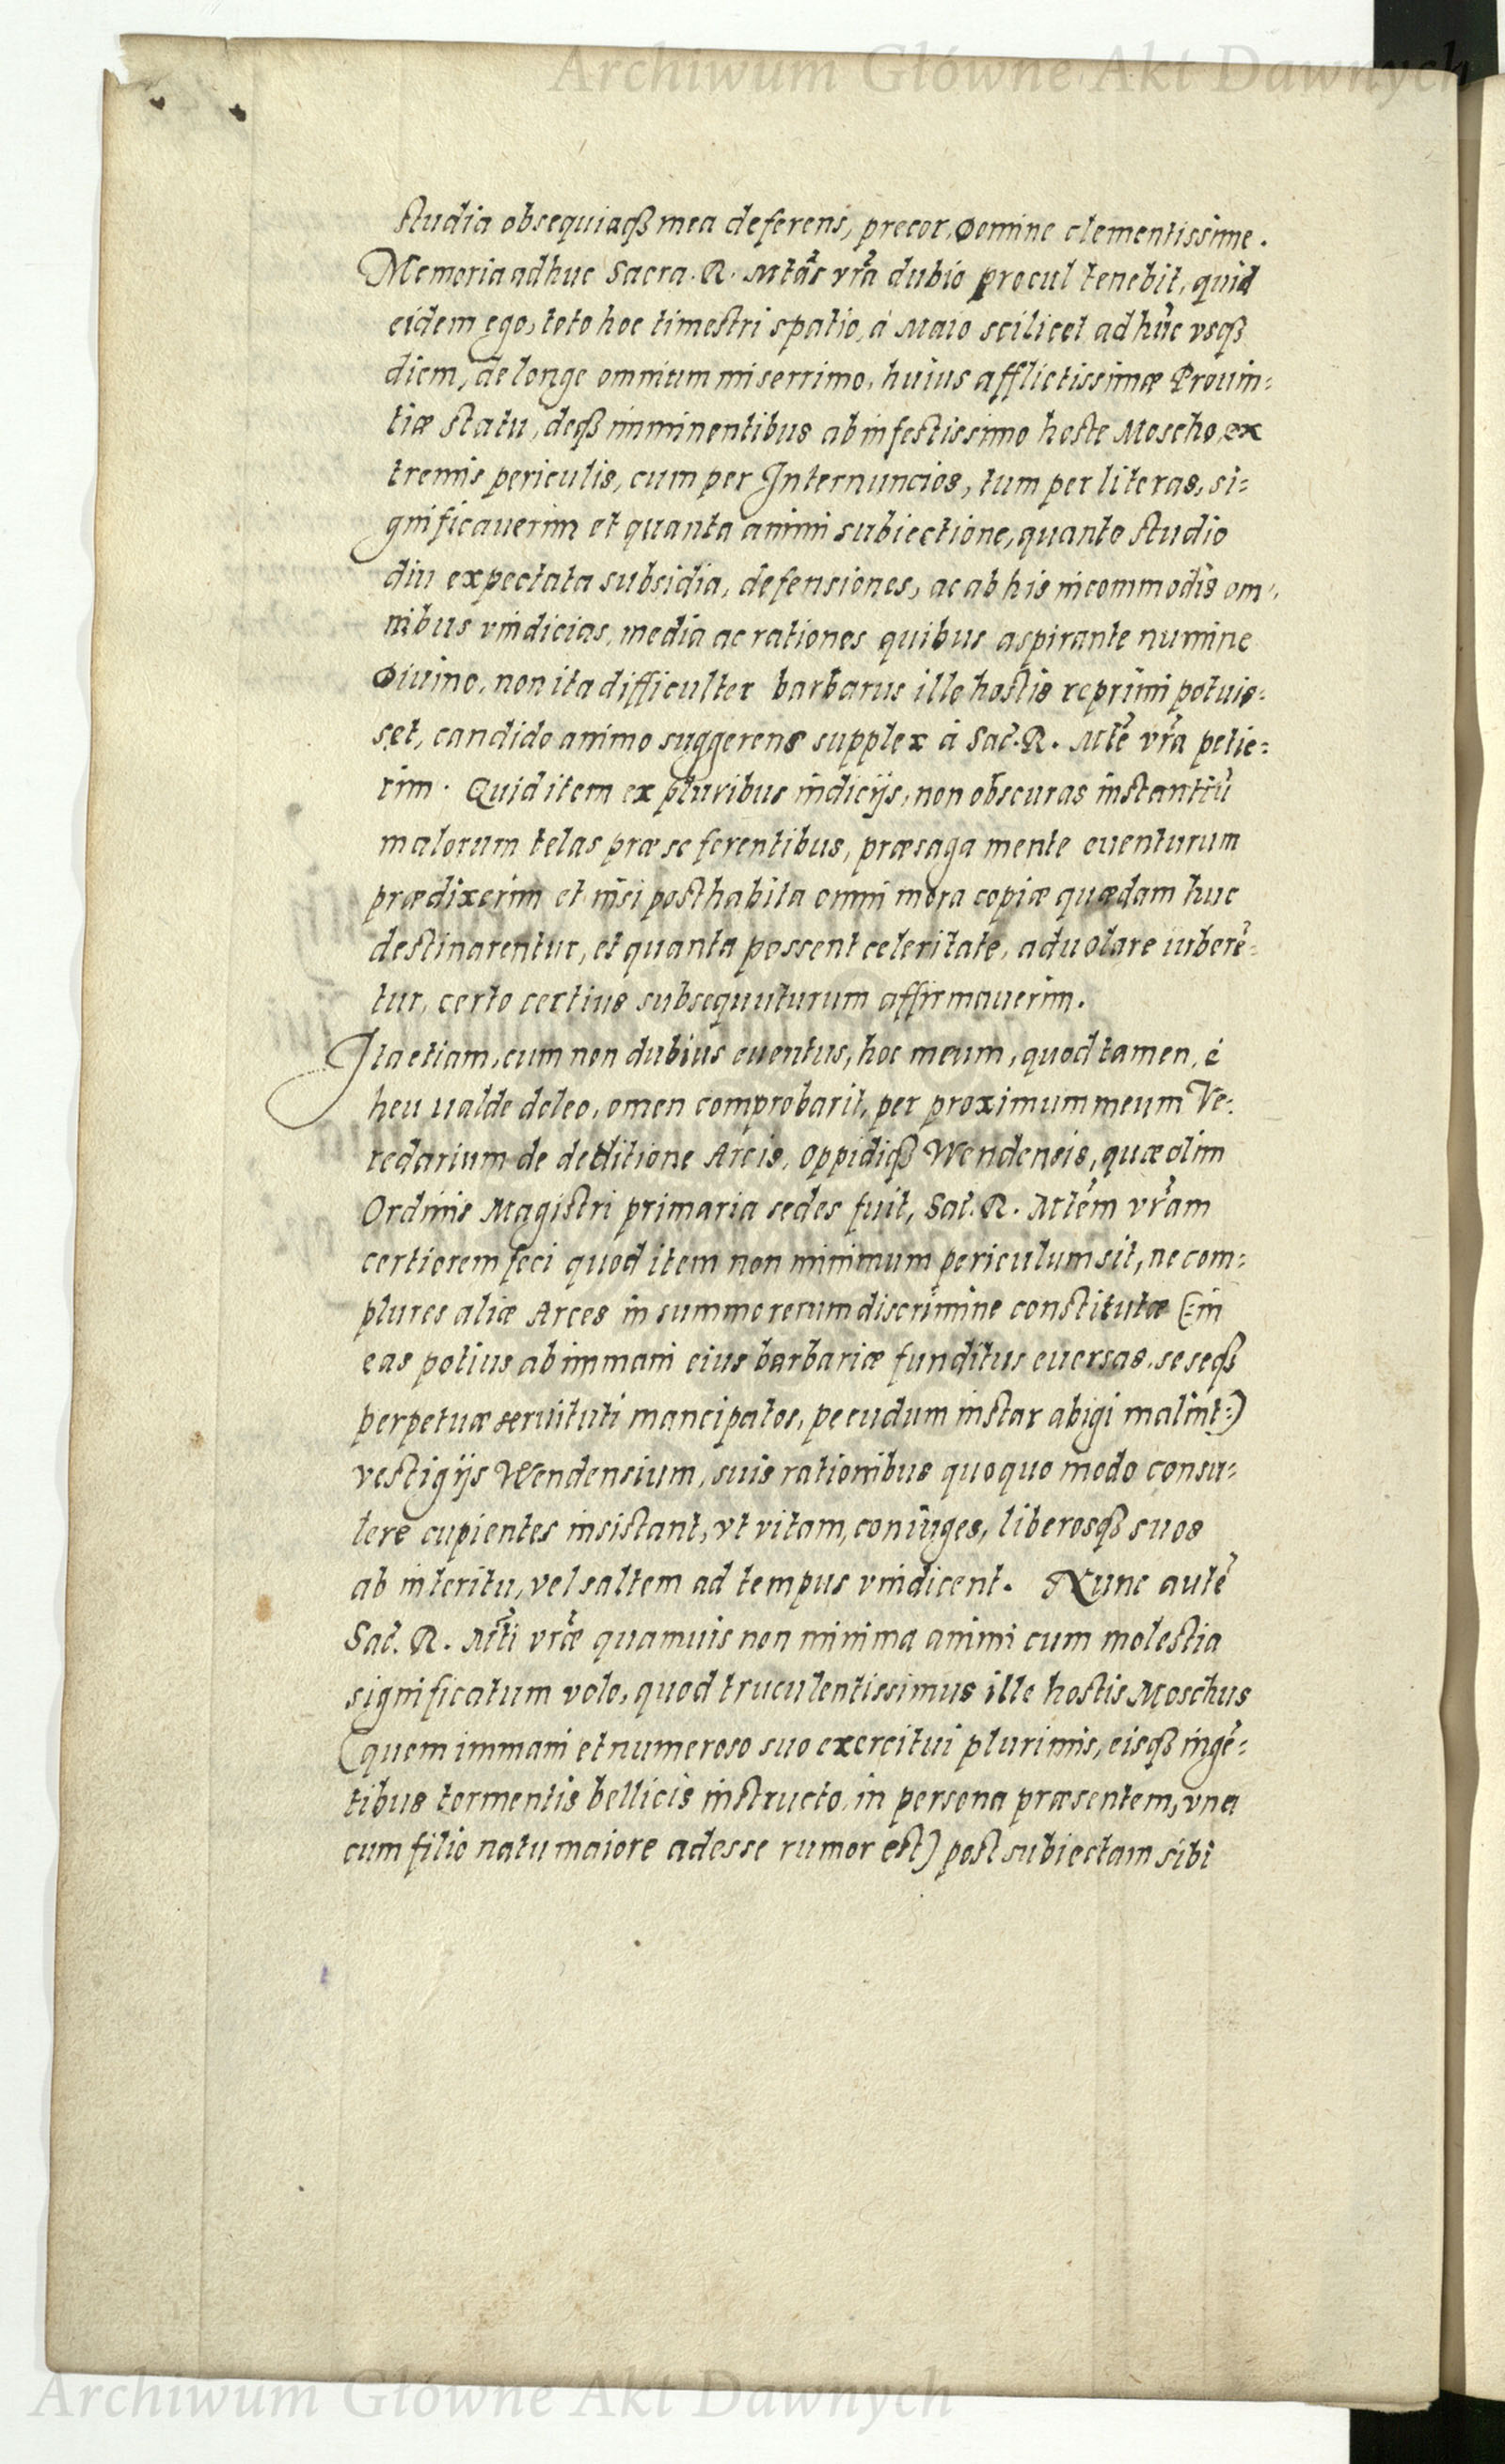 Archiwum Główne Akt Dawnych
studia obsequiaqß mea deferens, precor, Domine clementissime.
Memoria adhuc Sacra. R. Mtās vrā dubio procul tenebit, quid
eidem ego, toto hoc timestri spatio, á Maio scilicet ad hūc vsqß
diem, de longe omnium miserrimo, huius afflictissimæ Prouin=
tiæ statu, deqß imminentibus ab infestissimo hoste Moscho, ex
tremis periculis, cum per Internuncios, tum per literas, si=
gnificauerim et quanta animi subiectione, quanto studio
diu expectata subsidia, defensiones, ac ab his incommodis om=
nibus vindicias, media ac rationes quibus aspirante numine
Diuino, non ita difficulter barbarus ille hostis reprimi potuis=
set, candido animo suggerens supplex á Sac. R. Mtē vrā petie=
rim. Quid item ex pluribus indicijs, non obscuras instantiū
malorum telas præ se ferentibus, præsaga mente euenturum
prædixerim et nisi posthabita omni mora copiæ quædam huc
destinarentur, et quanta possent celeritate, aduolare iuberē=
tur, certo certius subsequuturum affirmauerim.
Ita etiam, cum non dubius euentus, hoc meum, quod tamen, é
heu ualde doleo, omen comprobarit, per proximum meum Ve=
redarium de deditione Arcis, Oppidiqß Wendensis, quæ olim
Ordinis Magistri primaria sedes fuit, Sac. R. Mtēm vrām
certiorem feci quod item non minimum periculum sit, ne com=
plures aliæ Arces in summo rerum discrimine constitutæ (:in
eas potius ab immani eius barbariæ funditus euersas, seseqß
perpetuæ seruituti mancipatos, pecudum instar abigi malint:)
vestigijs Wendensium, suis rationibus quoquo modo consu=
lere cupientes insistant, vt vitam, coniuges, liberosqß suos
ab interitu, vel saltem ad tempus vindicent. Nunc autē
Sac. R. Mtī vræ quamuis non minima animi cum molestia
significatum volo, quod truculentissimus ille hostis Moschus
(quem immani et numeroso suo exercitui plurimis, eisqß ingē=
tibus tormentis bellicis instructo, in persona præsentem, vna
cum filio natu maiore adesse rumor est) post subiectam sibi
Archiwum Główne Akt Dawnych